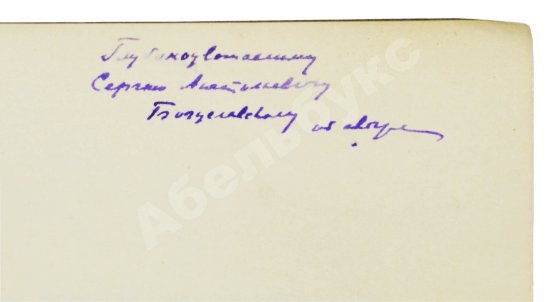 Глубокоуважаемому
Сергею Анатольевичу
Богуславскому от автора
Абельбукс